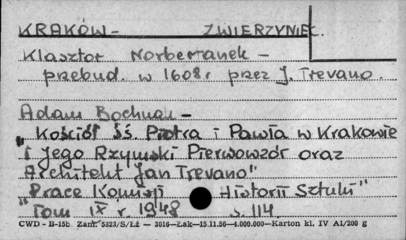 KRAKÓW - ZWIERZYNIEC.
Klasztor Norbertanek -
przebud. w 1608r przez J. Trevano.
Adam Bochnak -
"Kościół ŚŚ. Piotra i Pawła w Krakowie
i Jego Rzymski Pierwowzór oraz
Architekt Jan Trevano"
"Prace Komisji Historii Sztuki"
Tom IX r. 1948 s. 114
CWD - B-15b. Zam. 5823/S/Łż — 3016—Łak—15.11.56—4.000.000—Karton kl. IV A1/200 g